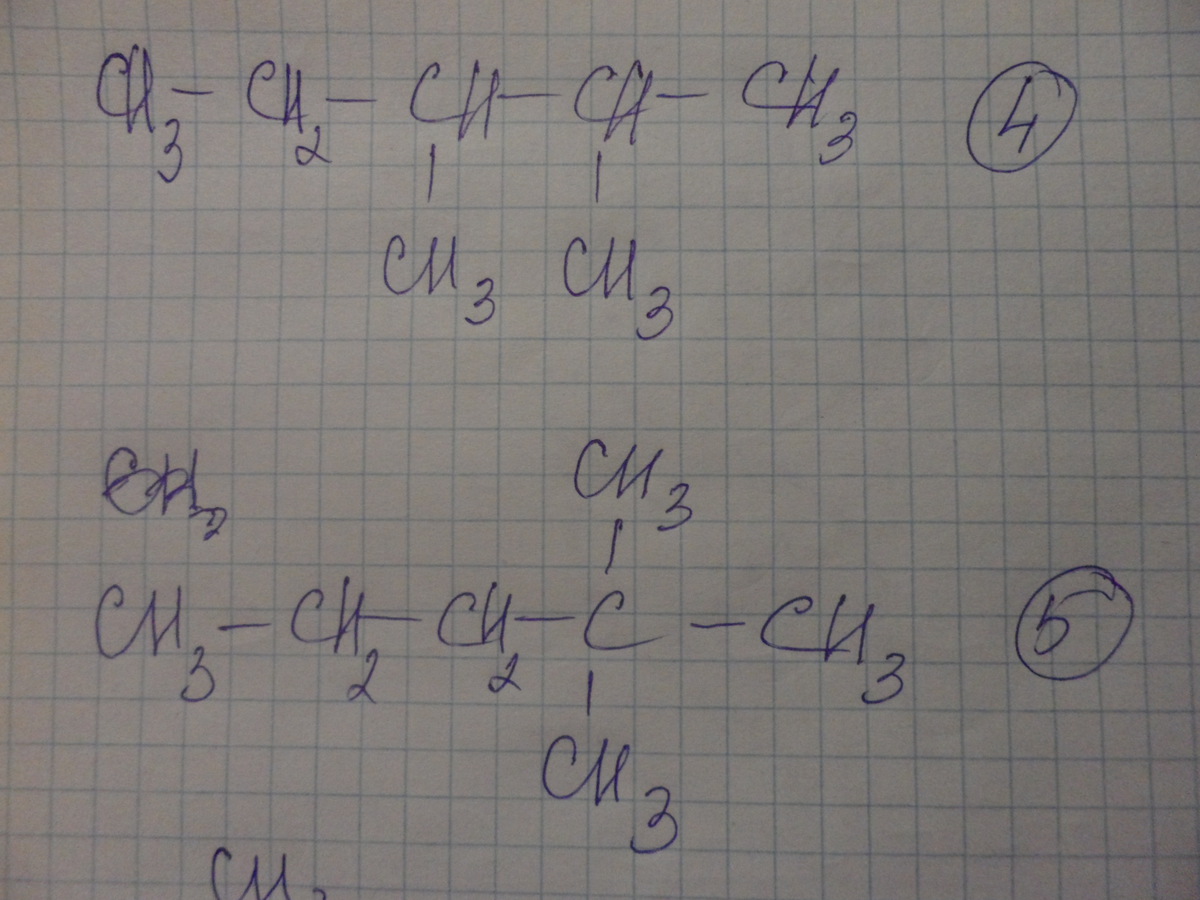 CH3 – CH2 – CH – CH – CH3 4
CH3 CH3
CH3
CH3 – CH2 – CH2 – C – CH3 5
CH3